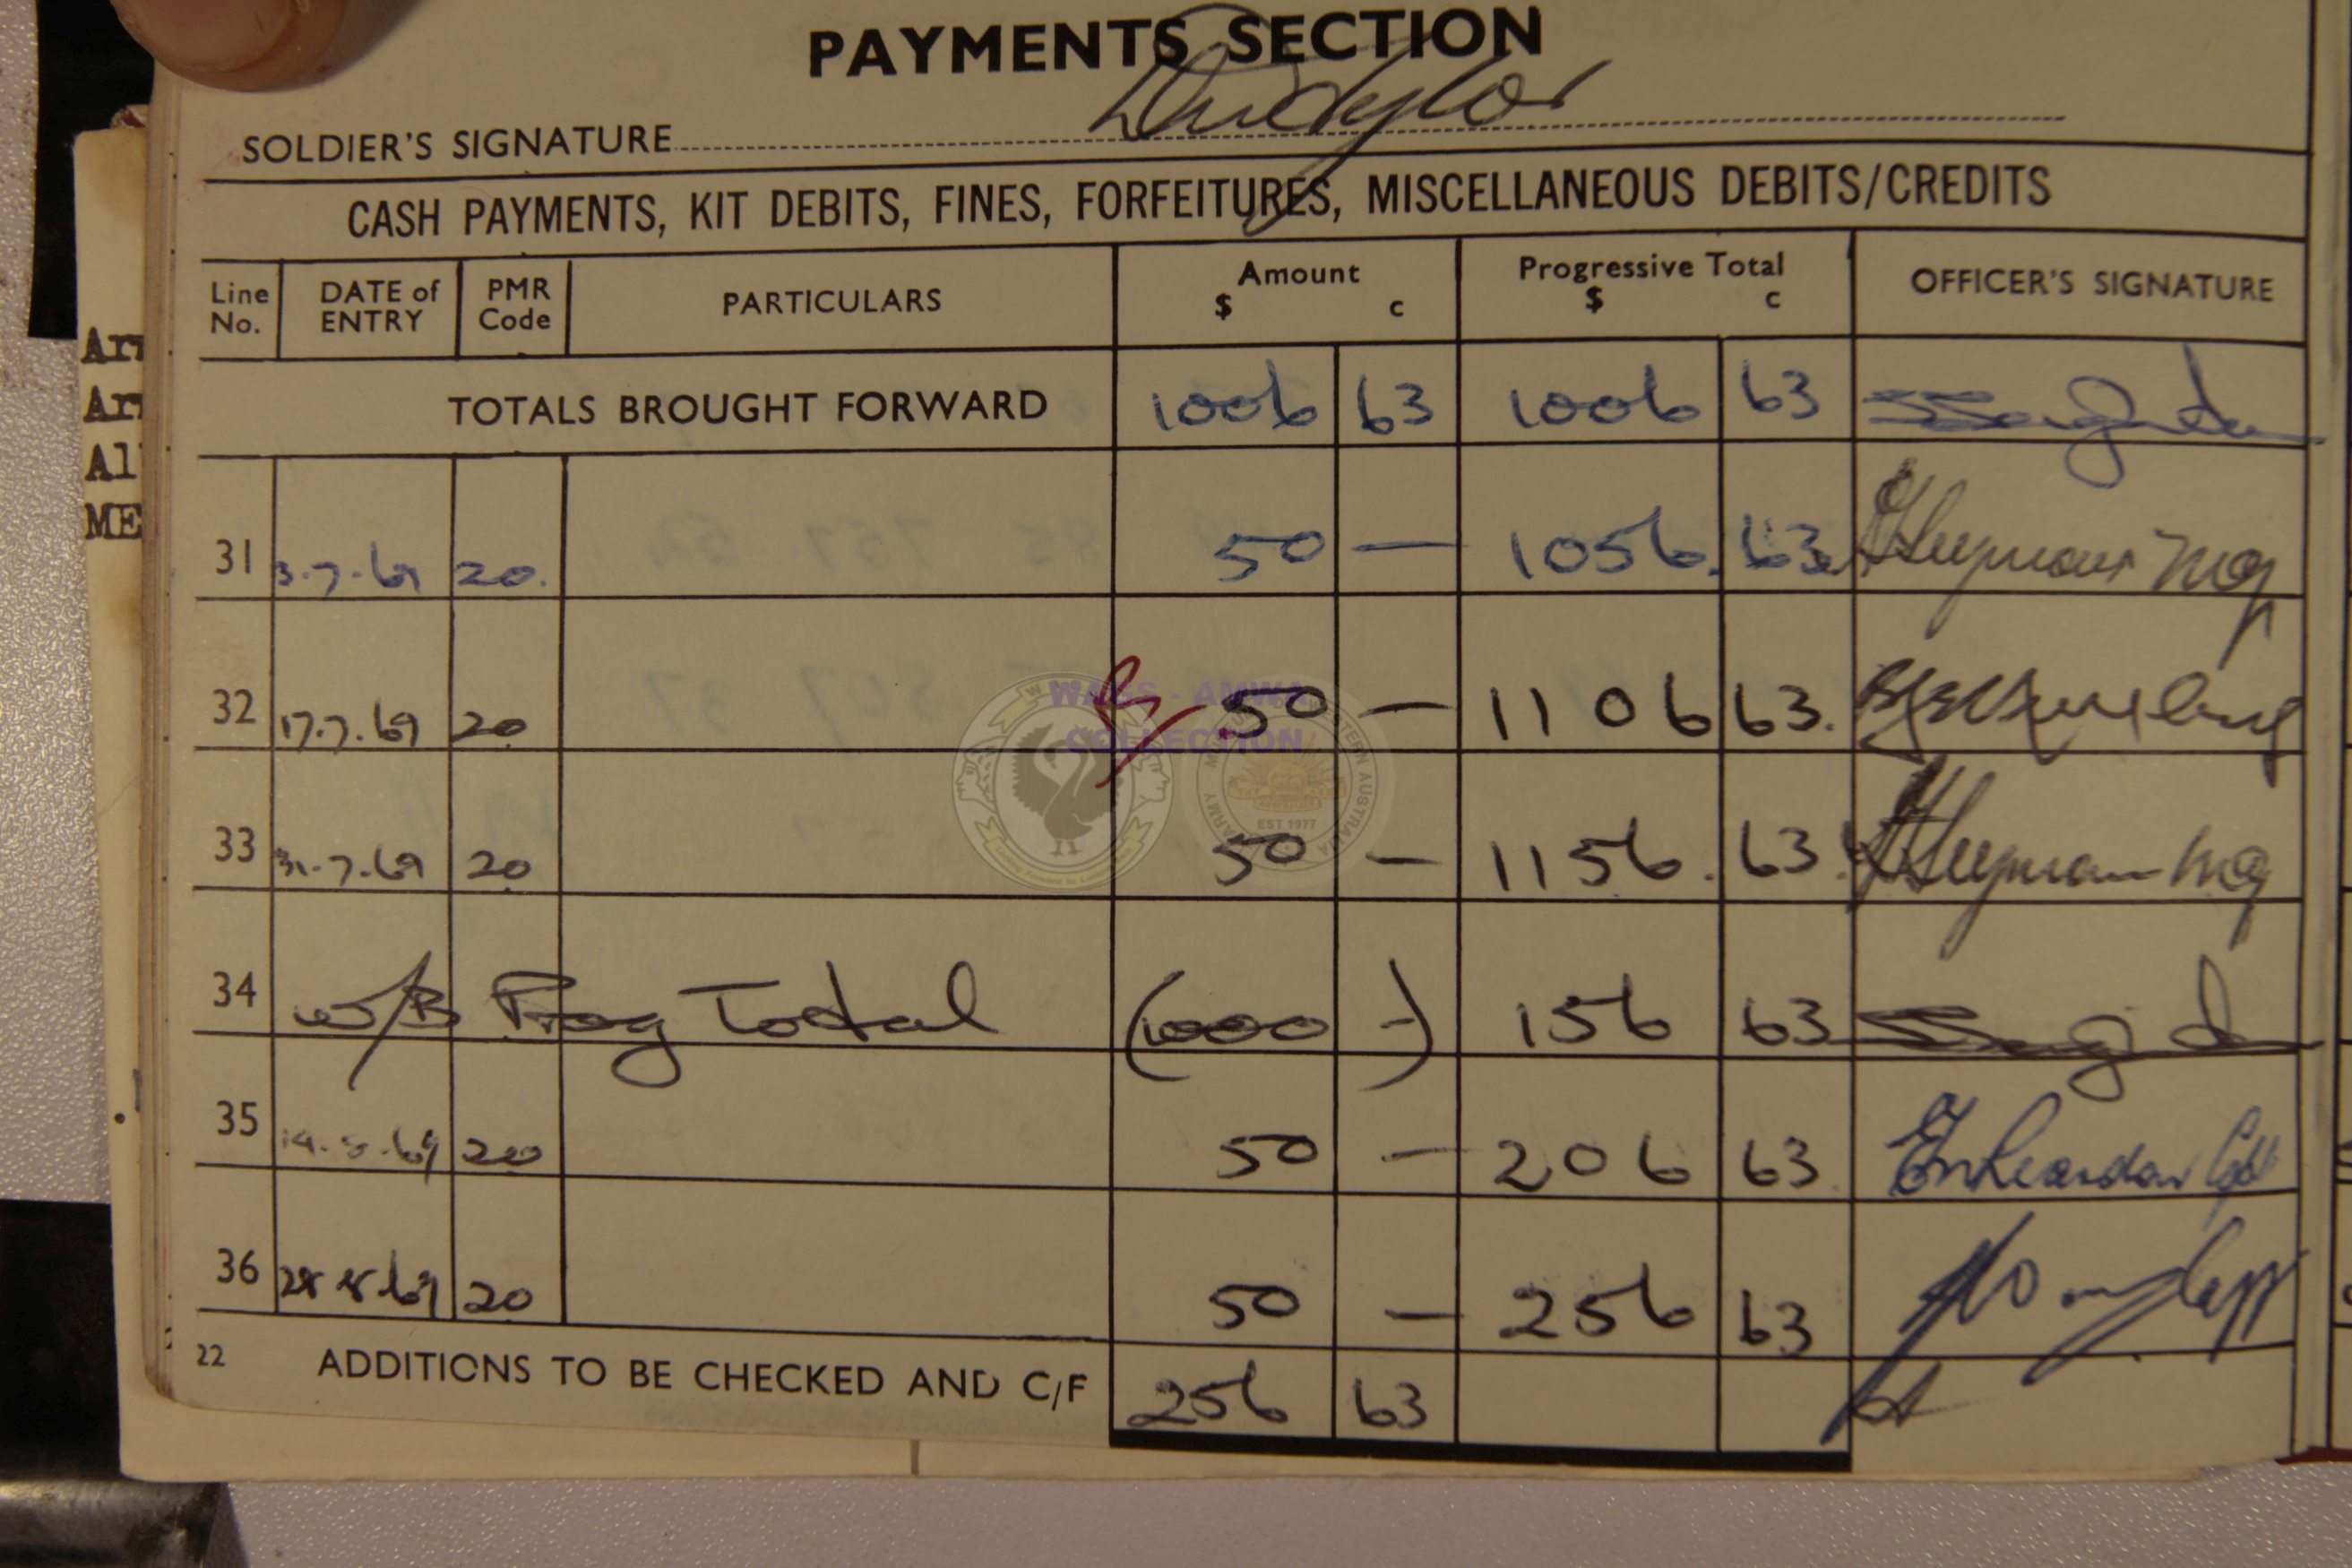 PAYMENTS SECTION
SOLDIER'S SIGNATURE
CASH PAYMENTS, KIT DEBITS, FINES, FORFEITURES, MISCELLANEOUS DEBITS/CREDITS
Line No. DATE of ENTRY PMR Code PARTICULARS Amount $ c Progressive Total $ c OFFICER'S SIGNATURE
TOTALS BROUGHT FORWARD 1006 63 1006 63
31 3.7.69 20. 50 — 1056. 63
32 17.7.69 20 50 — 1106 63.
33 31.7.69 20 50 — 1156. 63.
34 w/B Prog Total (1000 -) 156 63
35 14.8.69 20 50 — 206 63
36 28.8.69 20 50 — 256 63
22 ADDITIONS TO BE CHECKED AND C/F 256 63
WAGS - AMWA
COLLECTION
EST 1977
Ar
Ar
Al
ME